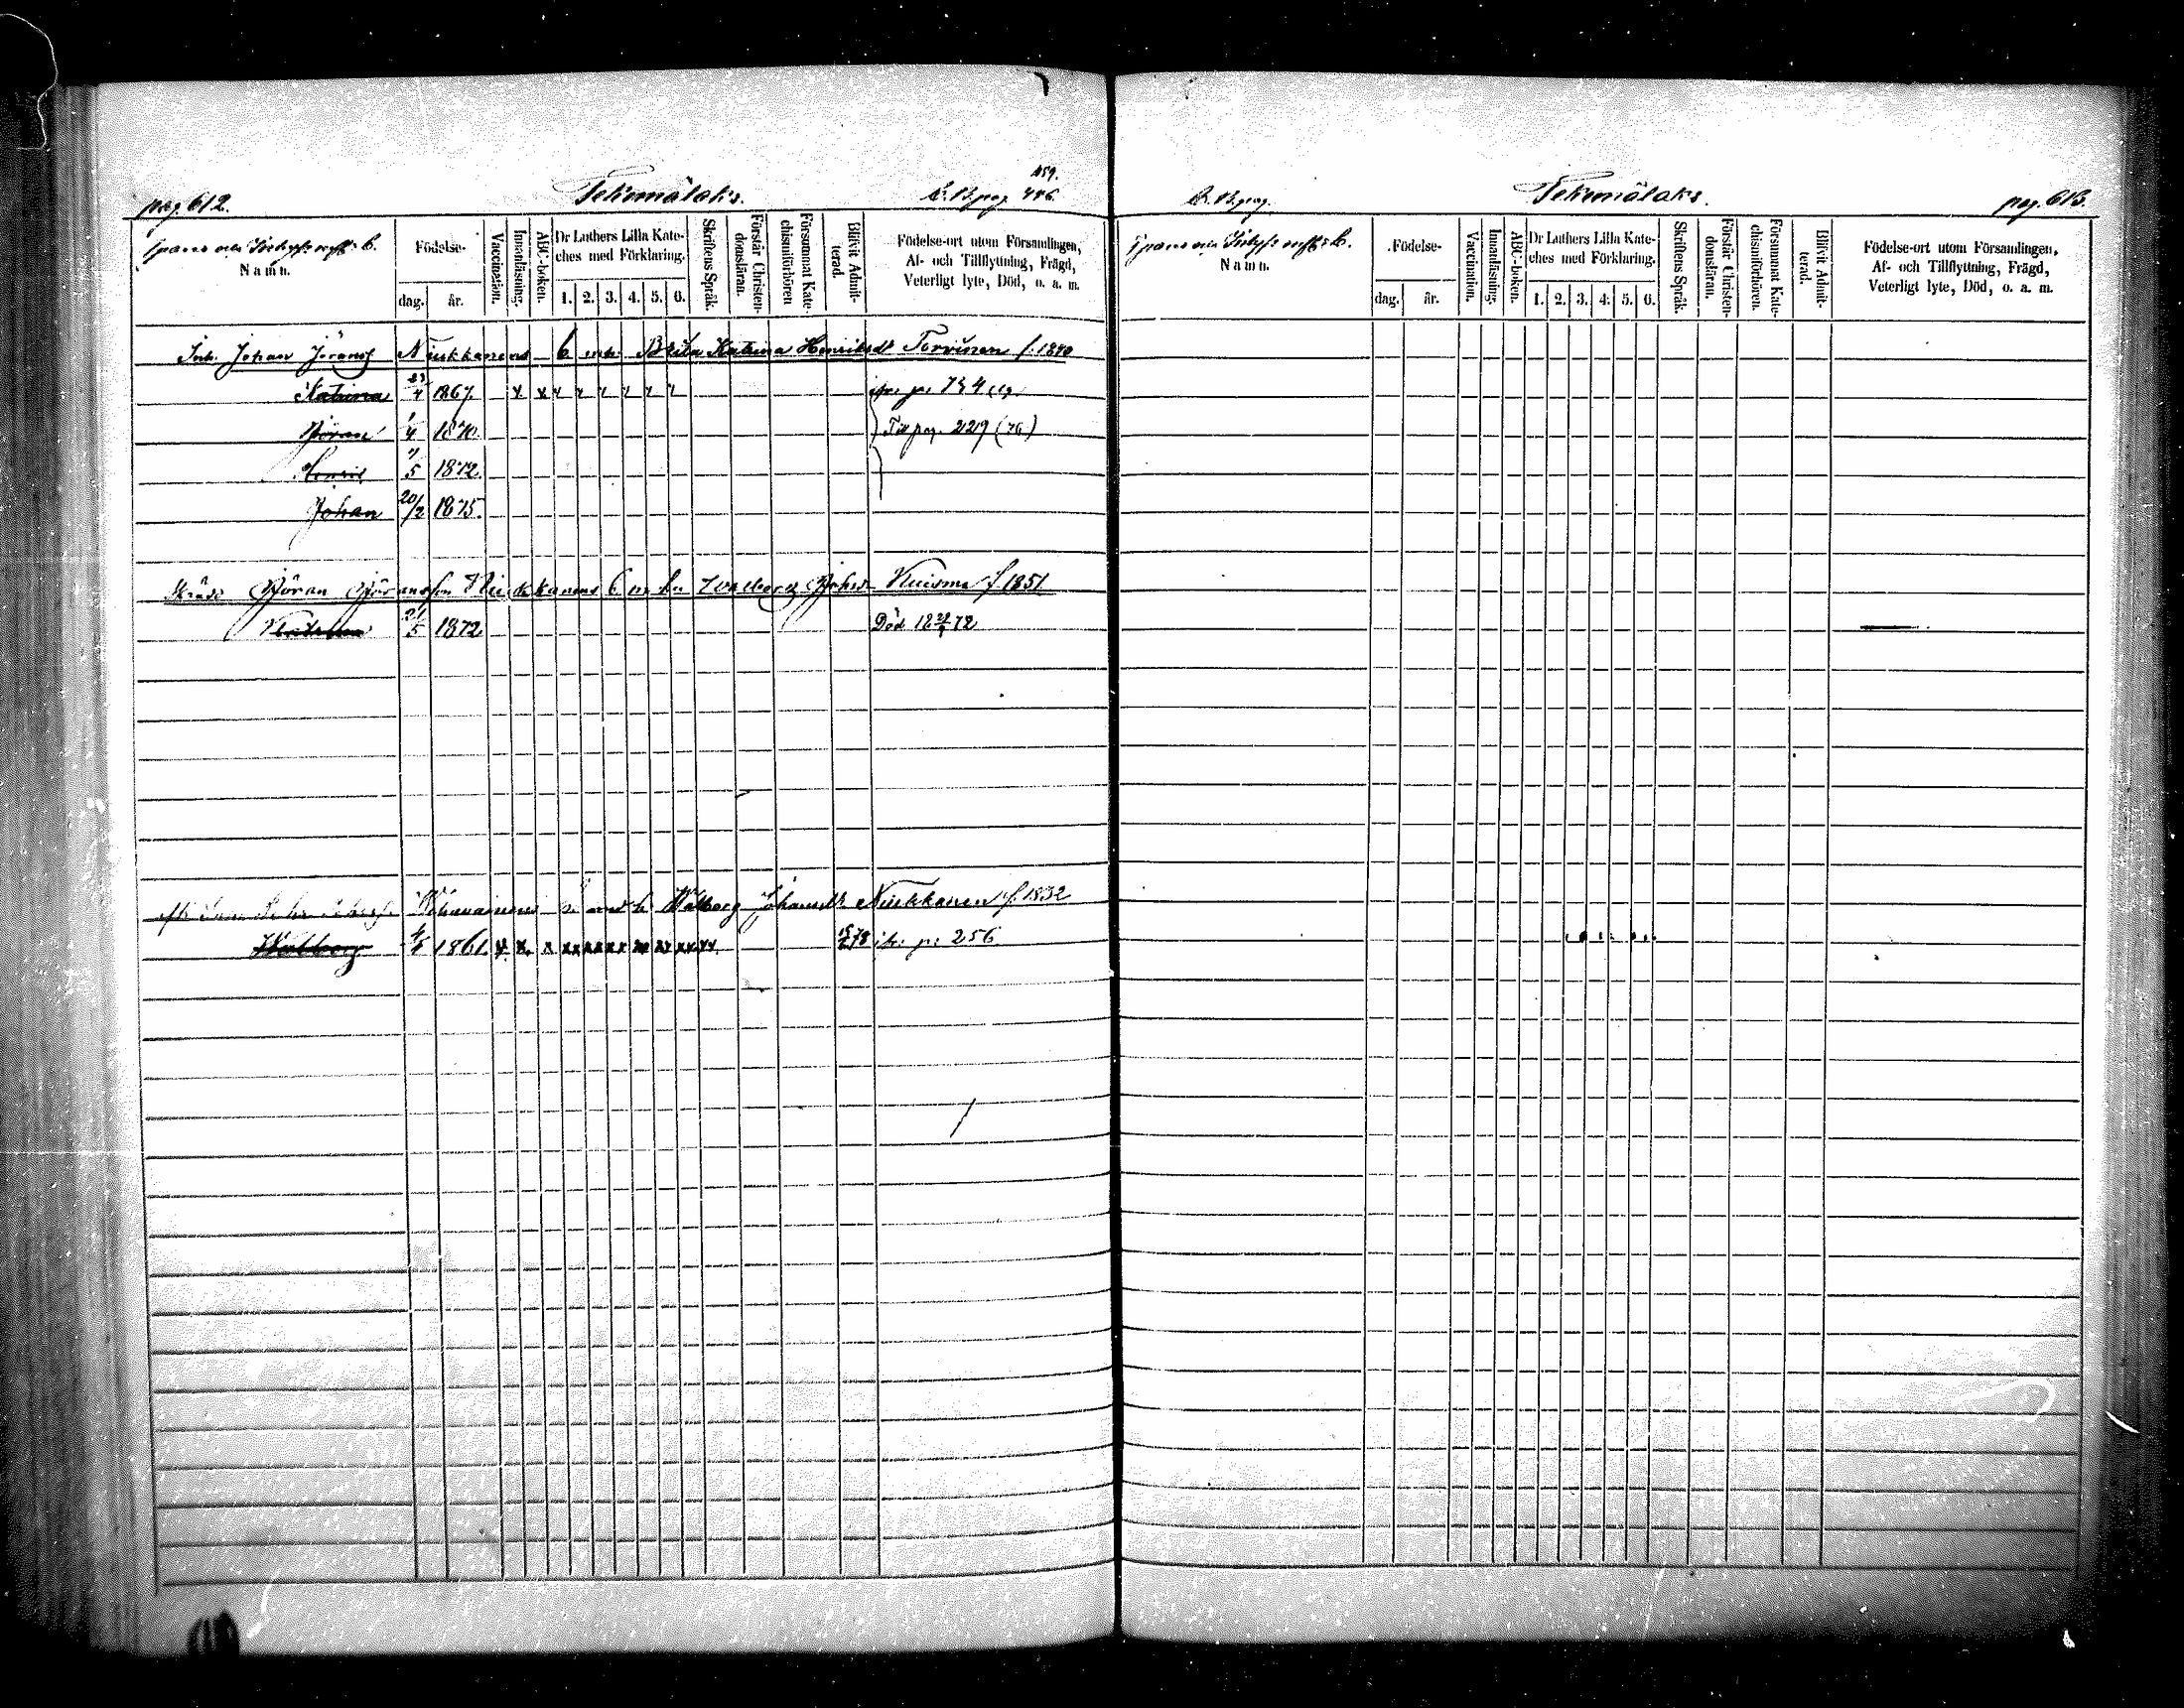 459.
pag. 612. Tekomälaks. C. B. pag. 486
Namn.
Födelse-
dag. år.
Vaccination.
Innanläsning.
ABC-boken.
Dr Luthers Lilla Kateches med Förklaring.
1. 2. 3. 4. 5. 6.
Skriftens Språk.
Förstår Christendomsläran.
Försummat Katechismiförhören
Blifvit Admitterad.
Födelse-ort utom Församlingen,
Af- och Tillflyttning, Frägd,
Veterligt lyte, Död, o. a. m.
Inh. Johan Göranss Niukkanens b. m. h. Brita Katrina Henriksdr Torvinen f. 1840
Katrina 23/4 1867. x x x x x x x x 734
Göran 1/4 1870. Till pag. 229 (76)
Henric 5 1872.
Johan 20/2 1875.
Göran Göransson Niukkanens b m. h. Walborg Johsdr Kuisma f 1851
Katrina 21/5 1872 Död 18 72
Walborg Johansdr Niukkanen f. 1832
Walborg 4/5 1861. x x. x xx xx xx xx xx xx xx 78 256
Tekomälaks. pag. 613.
C. B. pag.
Namn.
Födelse-
dag. år.
Vaccination.
Innanläsning.
ABC-boken.
Dr Luthers Lilla Kateches med Förklaring.
1. 2. 3. 4. 5. 6.
Skriftens Språk.
Förstår Christendomsläran.
Försummat Katechismiförhören.
Blifvit Admitterad.
Födelse-ort utom Församlingen,
Af- och Tillflyttning, Frägd,
Veterligt lyte, Död, o. a. m.